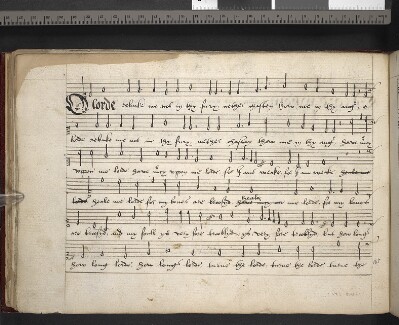 O lorde rebuke me not in thy fury neither chasten thow me in thy anger o
lorde rebuke me not in thy fury neither chasten thow me in thy anger have mercy
upon me lorde have mercy upon me lorde for I am weake for I am weake
heale me lorde for my bones are heale me lorde for my bones
are and my soule ys very sore trobled ys very sore trobled but how long
how long lorde how long lorde turne the lorde turne the lorde turne the